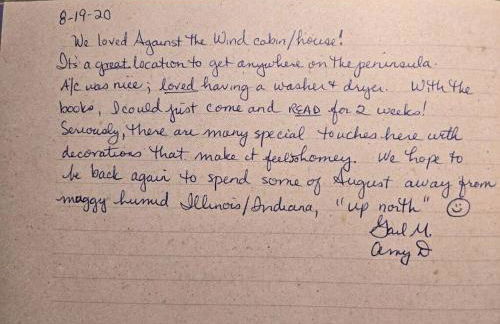 8-19-20
We loved Against the Wind cabin/house!
It's a great location to get anywhere on the peninsula.
A/c was nice; loved having a washer & dryer. With the
books, I could just come and READ for 2 weeks!
Seriously, there are many special touches here with
decorations that make it feel so homey. We hope to
be back again to spend some of August away from
muggy humid Illinois/Indiana, "up north" ☺
Gail M.
Amy D